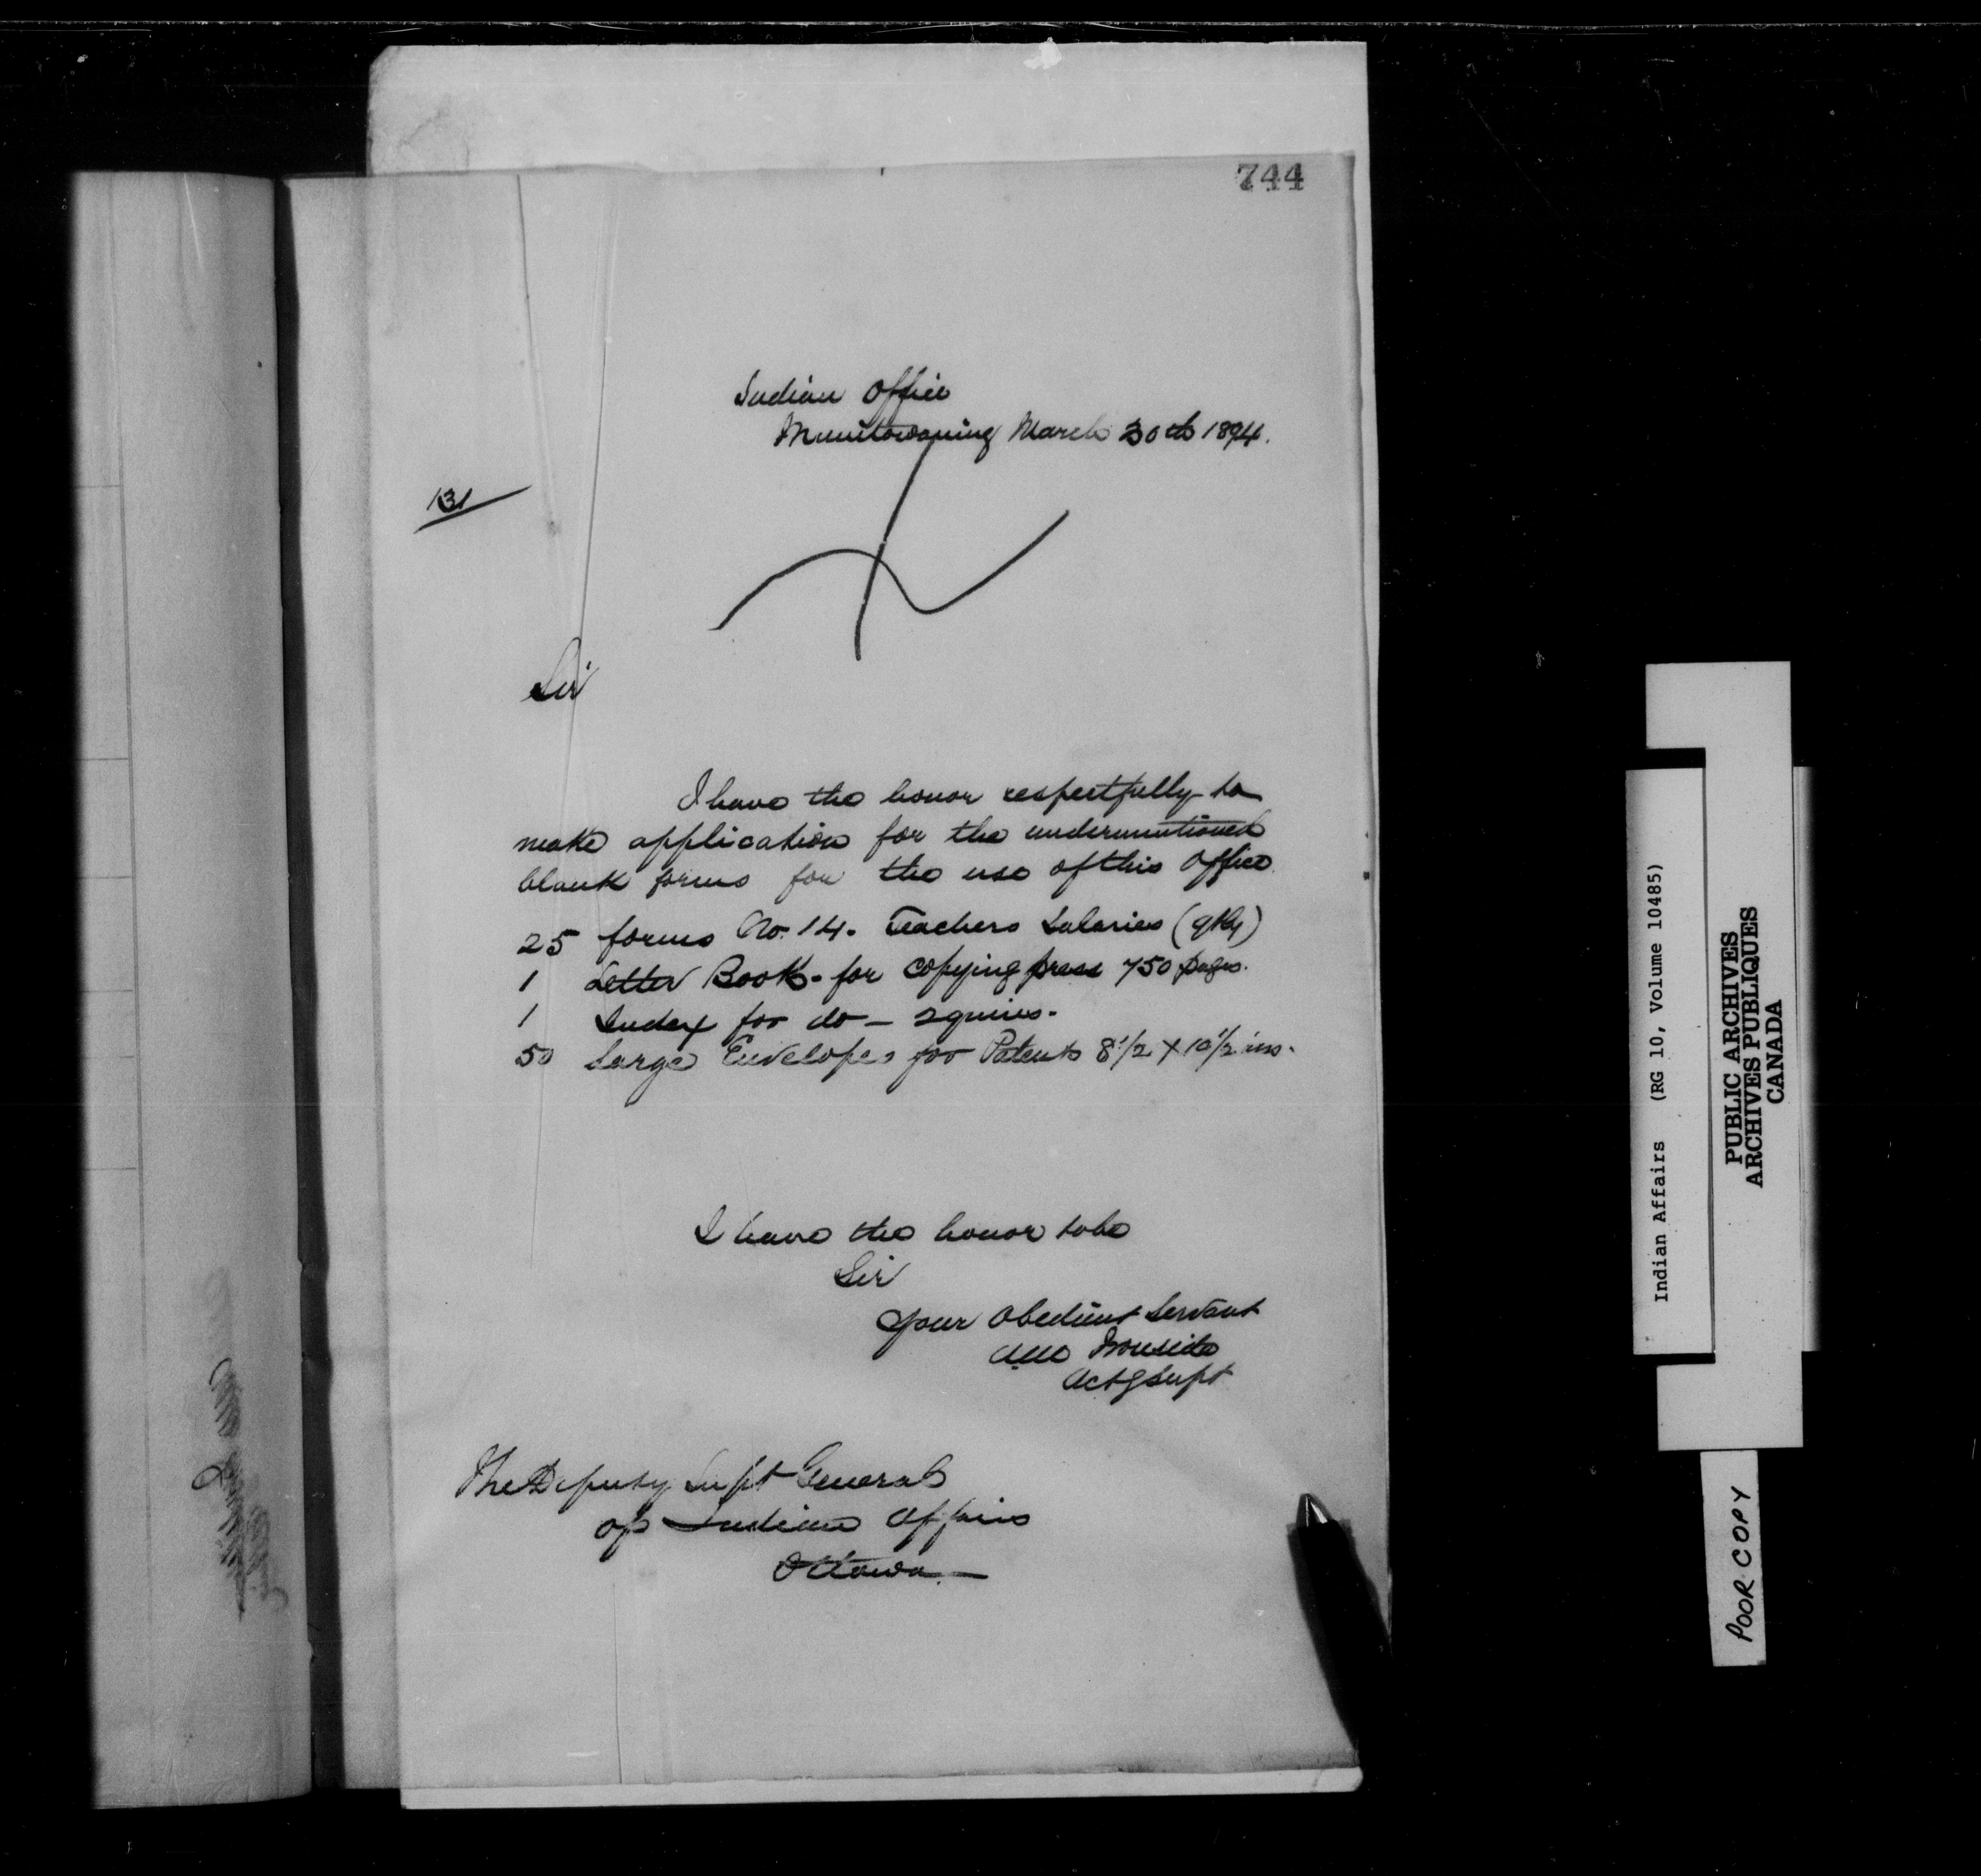 744
Indian Office
Manitowaning March 30th 1894.
131
Sir
I have the honor respectfully to
make application for the undermentioned
blank forms for the use of this Office.
25 forms No. 14. Teachers Salaries (qtly)
1 Letter Book - for copying press 750 pages.
1 Index for do - 2 quires.
50 Large Envelopes for Patents 8 1/2 x 10 1/2 ins.
I have the honor to be
Sir
Your Obedient Servant
Ironside
Actg Supt
The Deputy Supt General
of Indian Affairs
Ottawa.
Indian Affairs (RG 10, Volume 10485)
PUBLIC ARCHIVES
ARCHIVES PUBLIQUES
CANADA
POOR COPY